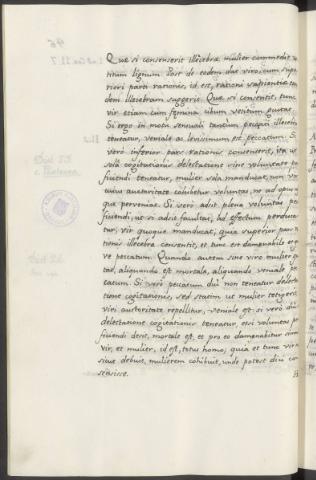 Quæ si consenserit illecebræ mulier commedit ve
titum lignum. Post de eodem dat viro, cum supe
riori parti rationis, id est, rationi sapientiæ ean
dem illecebram suggerit. Quæ si consentit, tunc
vir etiam cum femina cibum vetitum gustat.
Si ergo in motu sensuali tantum peccati illecebra
teneatur, veniale ac levissimum est peccatum. Si
vero inferior pars rationis consenserit, ita ut
sola cogitationis delectatione sine voluntate per
ficiendi teneatur, mulier sola manducat, non vir
cuius auctoritate cohibetur voluntas, ne ad opus us
que perveniat. Si vero adsit plena voluntas per
ficiendi, ut si adsit facultas, ad effectum perduca
tur, vir quoque manducat, quia superior pars ra
tionis illecebræ consentit, et tunc est damnabile et gra
ve peccatum. Quando autem sine viro mulier gus
tat, aliquando est mortale, aliquando veniale pec
catum. Si vero peccatum diu non teneatur delecta
tione cogitationis, sed statim ut mulier tetigerit,
viri auctoritate repellitur, veniale est: si vero diu
delectatione cogitationis teneatur, etsi voluntas per
ficiendi desit, mortale est, et pro eo damnabitur simul
vir, et mulier, id est, totus homo; quia et tunc vir
sicut debuit, mulierem cohibuit, unde potest dici con
sensisse.
Dist 33
Dist 24